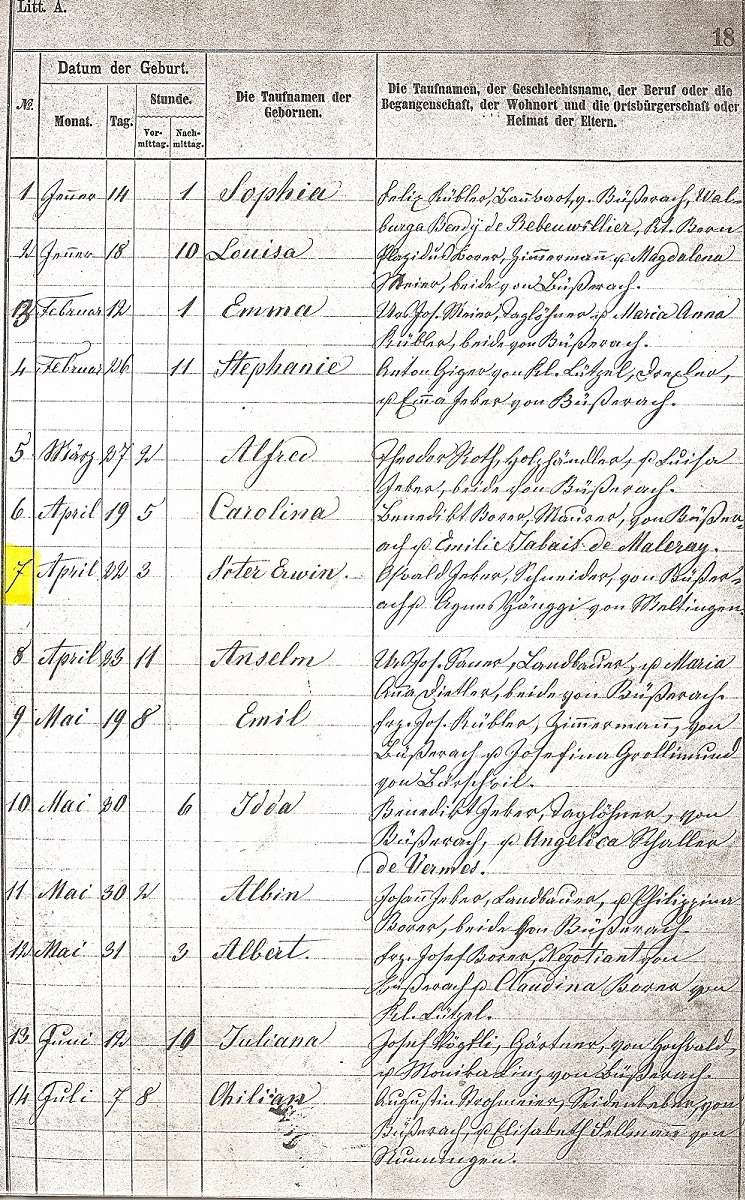 Litt. A.
18
Datum der Geburt.
Stunde.
№.
Monat.
Tag.
Vor-
mittag.
Nach-
mittag.
Die Taufnamen der
Gebornen.
Die Taufnamen, der Geschlechtsname, der Beruf oder die
Begangenschaft, der Wohnort und die Ortsbürgerschaft oder
Heimat der Eltern.
1 Jenner 14 1 Sophia Felix Kübler, Bannwart, v. Büßerach, Wal-
burga Bendy de Rebeuwillier, Kt. Bern
2 Jenner 18 10 Louisa Plazidus Borer, Zimmermann u Magdalena
Meier, beide von Büßerach.
3 Februar 12 1 Emma Urs Jos. Meier, Taglöhner u Maria Anna
Kübler, beide von Büßerach.
4 Februar 26 11 Stephanie Anton Giger von Kl. Lützel, Drexler,
u Emma Jeker von Büßerach.
5 März 27 2 Alfred Theodor Roth, Holzhändler, u Luisa
Jeker, beide von Büßerach.
6 April 19 5 Carolina Benedikt Borer, Maurer, von Büßer-
ach u Emilie Jabais de Maleray.
7 April 22 3 Soter Erwin. Oswald Jeker, Schneider, von Büßer-
ach u Agnes Hänggi von Meltingen
8 April 23 11 Anselm Urs Jos. Saner, Landbauer, u Maria
Ana Dietler, beide von Büßerach.
9 Mai 19 8 Emil Frz. Jos. Kübler, Zimmermann, von
Büßerach u Josefina Grollimund
von Bärschwil.
10 Mai 30 6 Idda Benedikt Jeker, Taglöhner, von
Büßerach, u Angelica Schaller
de Vermes.
11 Mai 30 2 Albin Johann Jeker, Landbauer, u Philippina
Borer, beide von Büßerach.
12 Mai 31 3 Albert. Frz. Josef Borer, Negotiant von
Büßerach u Claudina Borer von
Kl. Lützel.
13 Juni 12 10 Juliana Josef Vögtli, Gärtner, von Hochwald,
u Monika Linz von Büßerach.
14 Juli 7 8 Chilian Augustin Strohmeier, Seidenweber, von
Büßerach, u Elisabeth Sellman von
Nunningen.